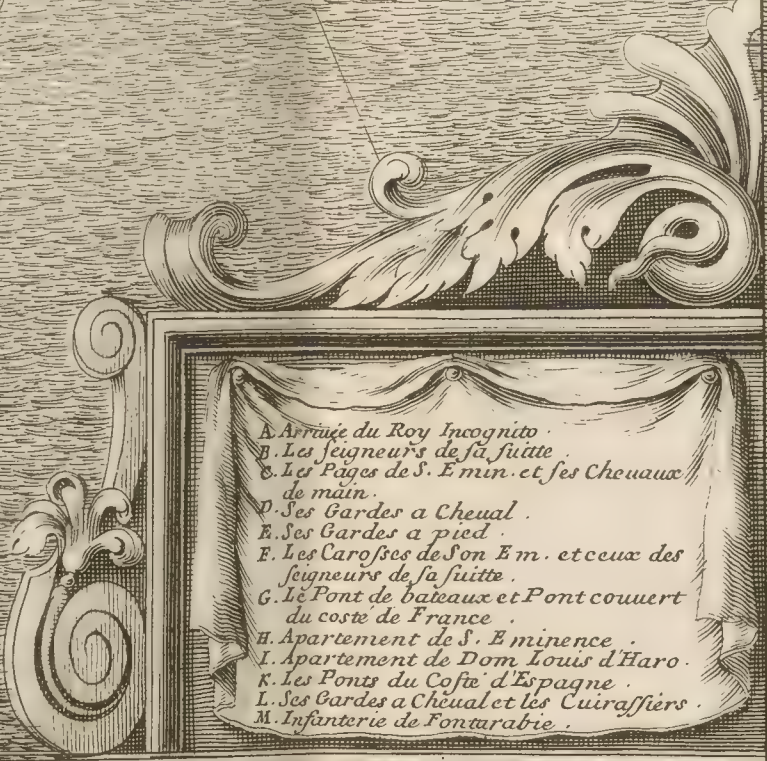 A. Arriuée du Roy Incognito.
B. Les ſeigneurs de ſa ſuitte.
C. Les Pages de S. Emin. et ſes Cheuaux
de main.
D. Ses Gardes a Cheual.
E. Ses Gardes a pied.
F. Les Caroſses de Son Em. et ceux des
ſeigneurs de ſa ſuitte.
G. Le Pont de bateaux et Pont couuert
du costé de France.
H. Apartement de S. Eminence.
I. Apartement de Dom Louis d'Haro.
K. Les Ponts du Coſté d'Espagne.
L. Ses Gardes a Cheual et les Cuiraſſiers.
M. Infanterie de Fontarabie.